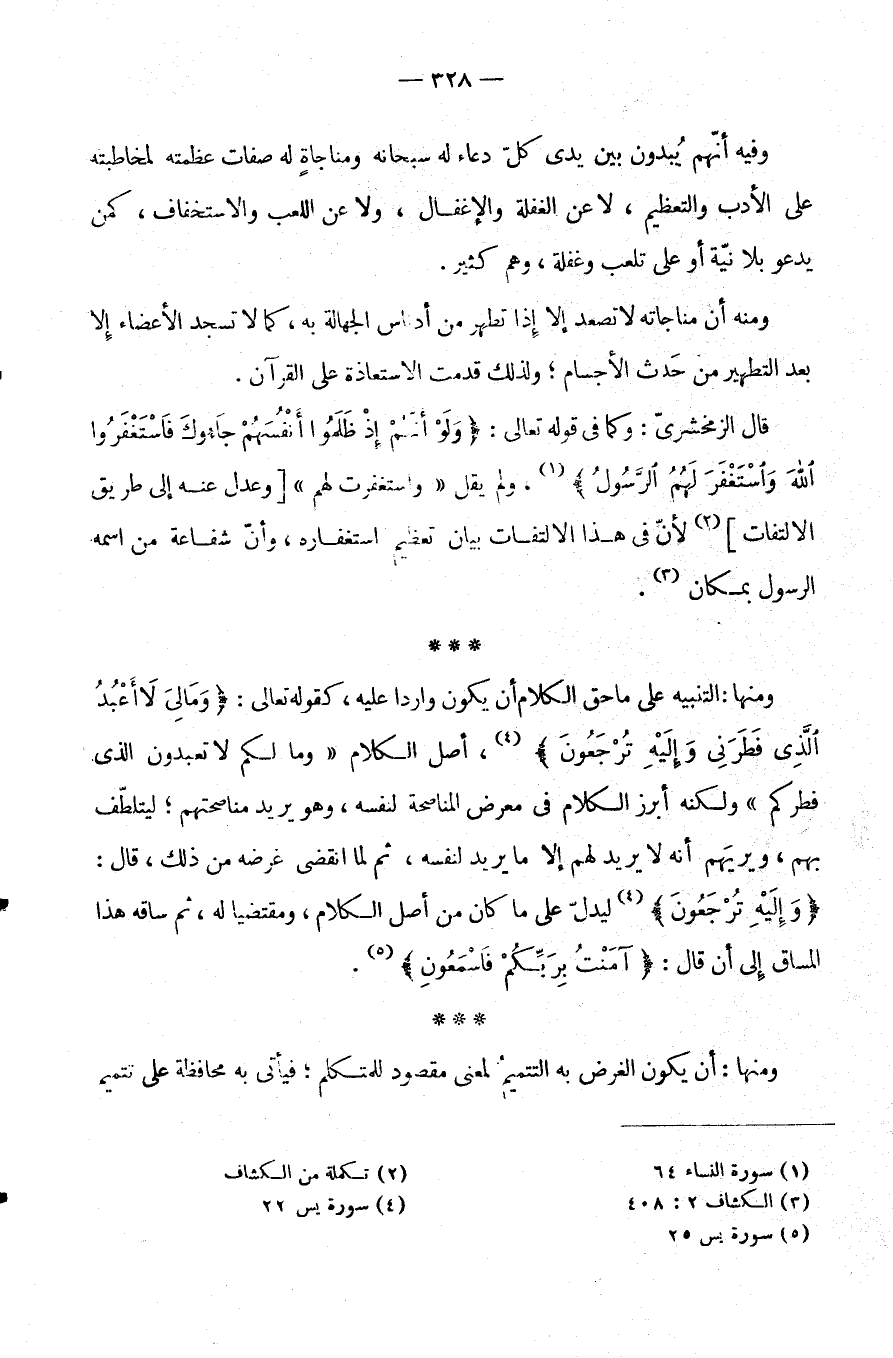 — ٣٢٨ —
وفيه أنّهم يُبدون بين يدى كلّ دعاء له سبحانه ومناجاةٍ له صفات عظمته لمخاطبته
على الأدب والتعظيم ، لا عن الغفلة والإغفـال ، ولا عن اللعب والاستخفاف ، كمن
يدعو بلا نيّة أو على تلعب وغفلة ، وهم كثير .
ومنه أن مناجاته لا تصعد إلا إذا تطهر من أدناس الجهالة به ، كما لا تسجد الأعضاء إلا
بعد التطهير من حَدث الأجسام ؛ ولذلك قدمت الاستعاذة على القرآن .
قال الزمخشرىّ : وكما فى قوله تعالى : ﴿ وَلَوْ أَنَّهُمْ إِذْ ظَلَمُوا أَنْفُسَهُمْ جَاءُوكَ فَاسْتَغْفَرُوا
ٱللهَ وَٱسْتَغْفَرَ لَهُمُ ٱلرَّسُولُ ﴾ (١) ، ولم يقل « واستغفرت لهم » [ وعدل عنـه إلى طريق
الالتفات ] (٢) لأنّ فى هـذا الالتفـات بيان تعظيم استغفـاره ، وأنّ شفـاعة من اسمه
الرسول بمـكان (٣) .
***
ومنها : التنبيه على ما حق الكلام أن يكون واردا عليه ، كقوله تعالى : ﴿ وَمَالِىَ لَا أَعْبُدُ
ٱلَّذِى فَطَرَنِى وَإِلَيْهِ تُرْجَعُونَ ﴾ (٤) ، أصل الـكلام « وما لـكم لا تعبدون الذى
فطركم » ولـكنه أبرز الـكلام فى معرض المناصحة لنفسه ، وهو يريد مناصحتهم ؛ ليتلطّف
بهم ، ويريَهم أنه لا يريد لهم إلا ما يريد لنفسه ، ثم لما انقضى غرضه من ذلك ، قال :
﴿ وَإِلَيْهِ تُرْجَعُونَ ﴾ (٤) ليدلّ على ما كان من أصل الـكلام ، ومقتضيا له ، ثم ساقه هذا
المساق إلى أن قال : ﴿ آمَنْتُ بِرَبِّـكُمْ فَاسْمَعُونِ ﴾ (٥) .
***
ومنها : أن يكون الغرض به التتميمُ لمعنى مقصود للمتـكلم ؛ فيأتى به محافظة على تتميم
(١) سورة النساء ٦٤
(٢) تـكملة من الـكشاف
(٣) الـكشاف ٢ : ٤٠٨
(٤) سورة يس ٢٢
(٥) سورة يس ٢٥